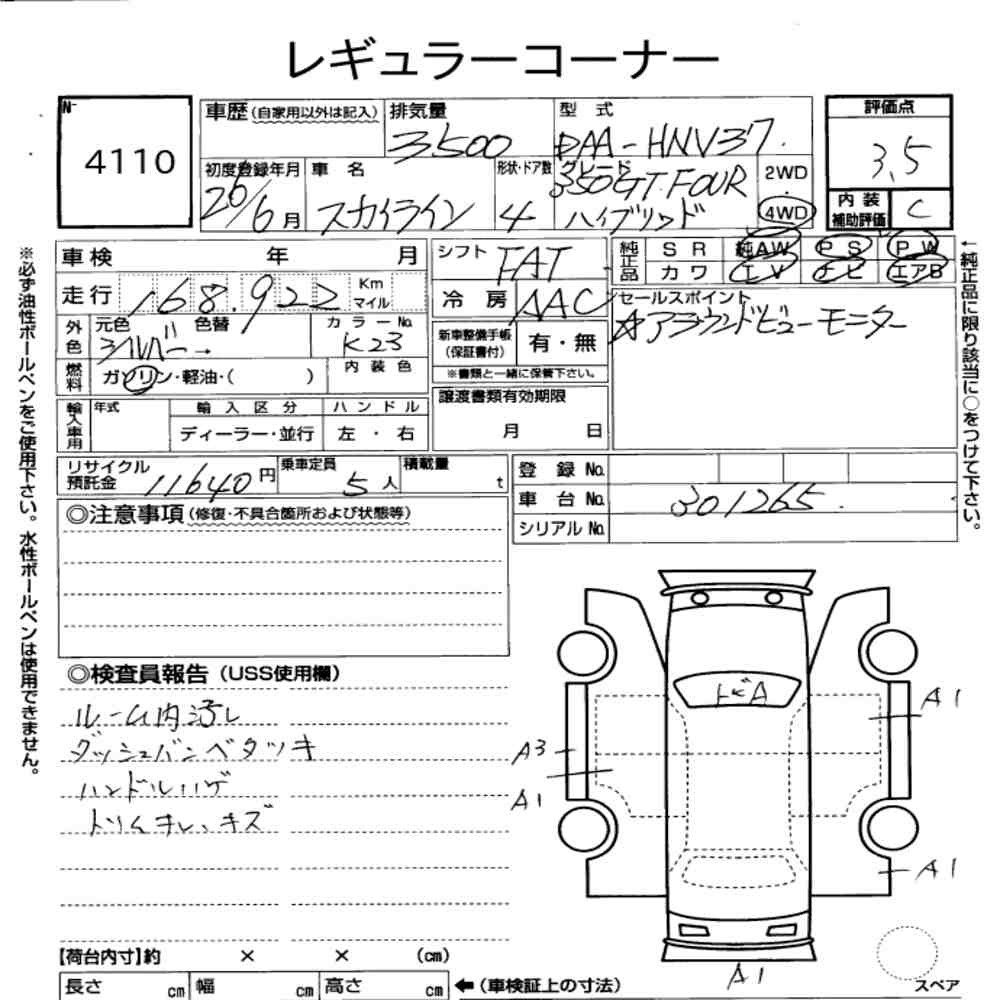 レギュラーコーナー
No.
4110
車歴 (自家用以外は記入)
排気量
3500
型 式
DAA-HNV37
評価点
3.5
初度登録年月
26/6月
車 名
スカイライン
形状・ドア数
4
グレード
350GT.FOUR
ハイブリッド
2WD
4WD
内装
補助評価
C
車検 年 月
シフト
FAT
純正品
SR 純AW PS PW
カワ TV ナビ エアB
走行 168.922 Km マイル
冷房 AAC
セールスポイント
☆アラウンドビューモニター
外色
元色 色替
シルバー 〃 →
カラーNo.
K23
新車整備手帳
(保証書付)
有・無
※書類と一緒に保管下さい。
燃料
ガソリン・軽油・( )
内装色
譲渡書類有効期限
月 日
輸入車用
年式
輸入区分
ディーラー・並行
ハンドル
左・右
リサイクル
預託金 11640円
乗車定員
5人
積載量
t
登録No.
車台No. 301265
シリアルNo.
◎注意事項 (修復・不具合箇所および状態等)
◎検査員報告 (USS使用欄)
ルーム内汚レ
ダッシュバンベタツキ
ハンドルハゲ
トリムキレ、キズ
トビA
A1
A3
A1
A1
A1
スペア
【荷台内寸】約 × × (cm)
長さ cm 幅 cm 高さ cm
←(車検証上の寸法)
※必ず油性ボールペンをご使用下さい。水性ボールペンは使用できません。
←純正品に限り該当に○をつけて下さい。